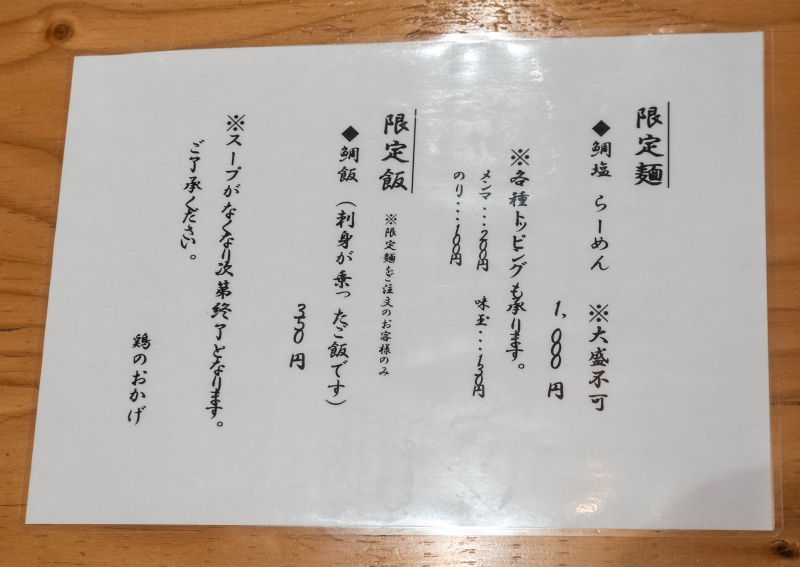 限定麺
◆鯛塩 らーめん ※大盛不可
1,000円
※各種トッピングも承ります。
メンマ・・・200円 味玉・・・150円
のり・・・100円
限定飯 ※限定麺をご注文のお客様のみ
◆鯛飯（刺身が乗ったご飯です）
350円
※スープがなくなり次第終了となります。
ご了承ください。
鶏のおかげ